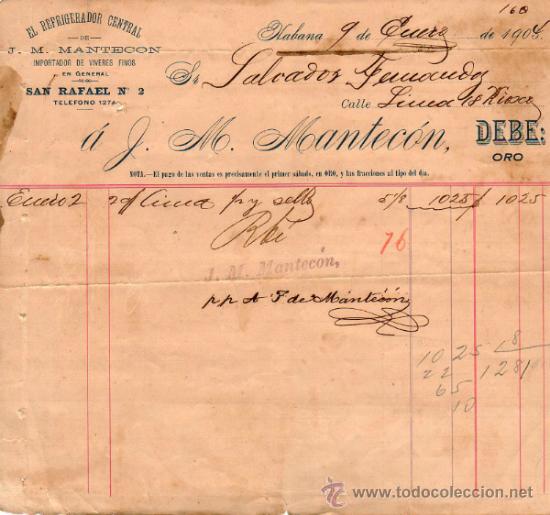 160
EL REFRIGERADOR CENTRAL
DE
J. M. MANTECON
IMPORTADOR DE VIVERES FINOS
EN GENERAL
SAN RAFAEL Nº 2
TELEFONO 1274
Habana 9 de Enero de 190
Sr Salvador
Calle Linea
á J. M. Mantecón, DEBE:
ORO
NOTA.—El pago de las ventas es precisamente el primer sábado, en ORO, y las fracciones al tipo del día.
Enero 2 p y 5/8 1025 1025
Rbi
76
J. M. Mantecón,
p.p A F de Mantecón
10 25 18
22 1281
65
10
© www.todocoleccion.net